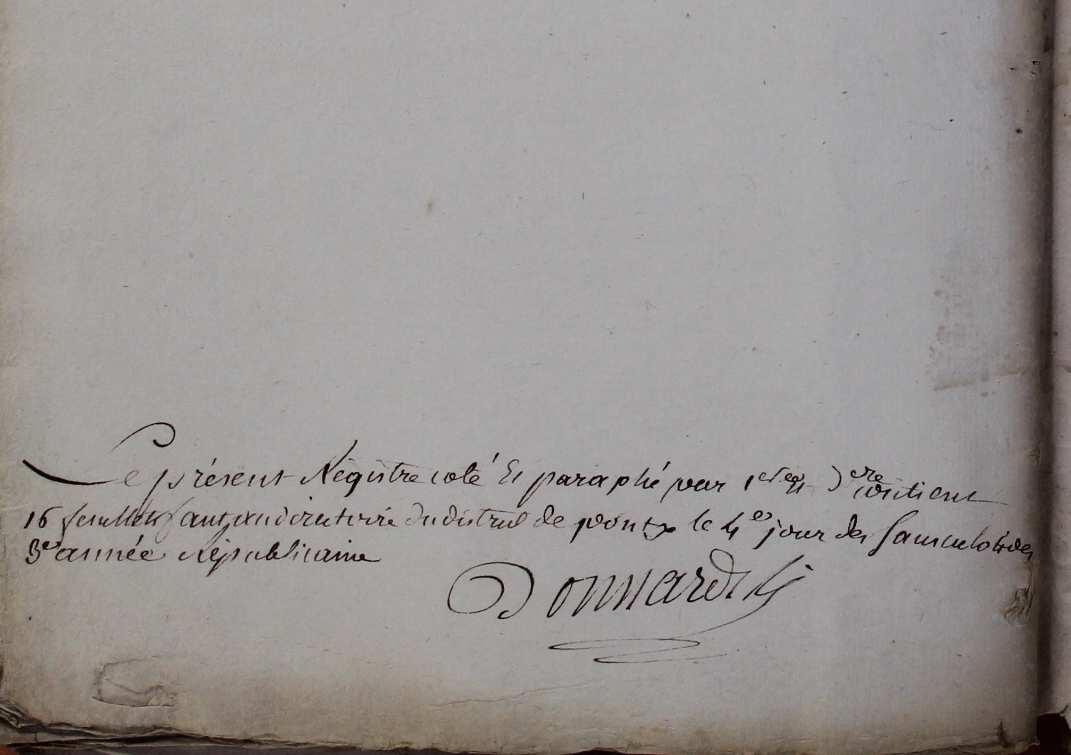 Ce présent Régistre coté Et paraphé par 1ere et dere contient
16 feuillets fait au directoire du district de pontx le 4e jour des Sansculotides
3e année Républicaine
Donnard